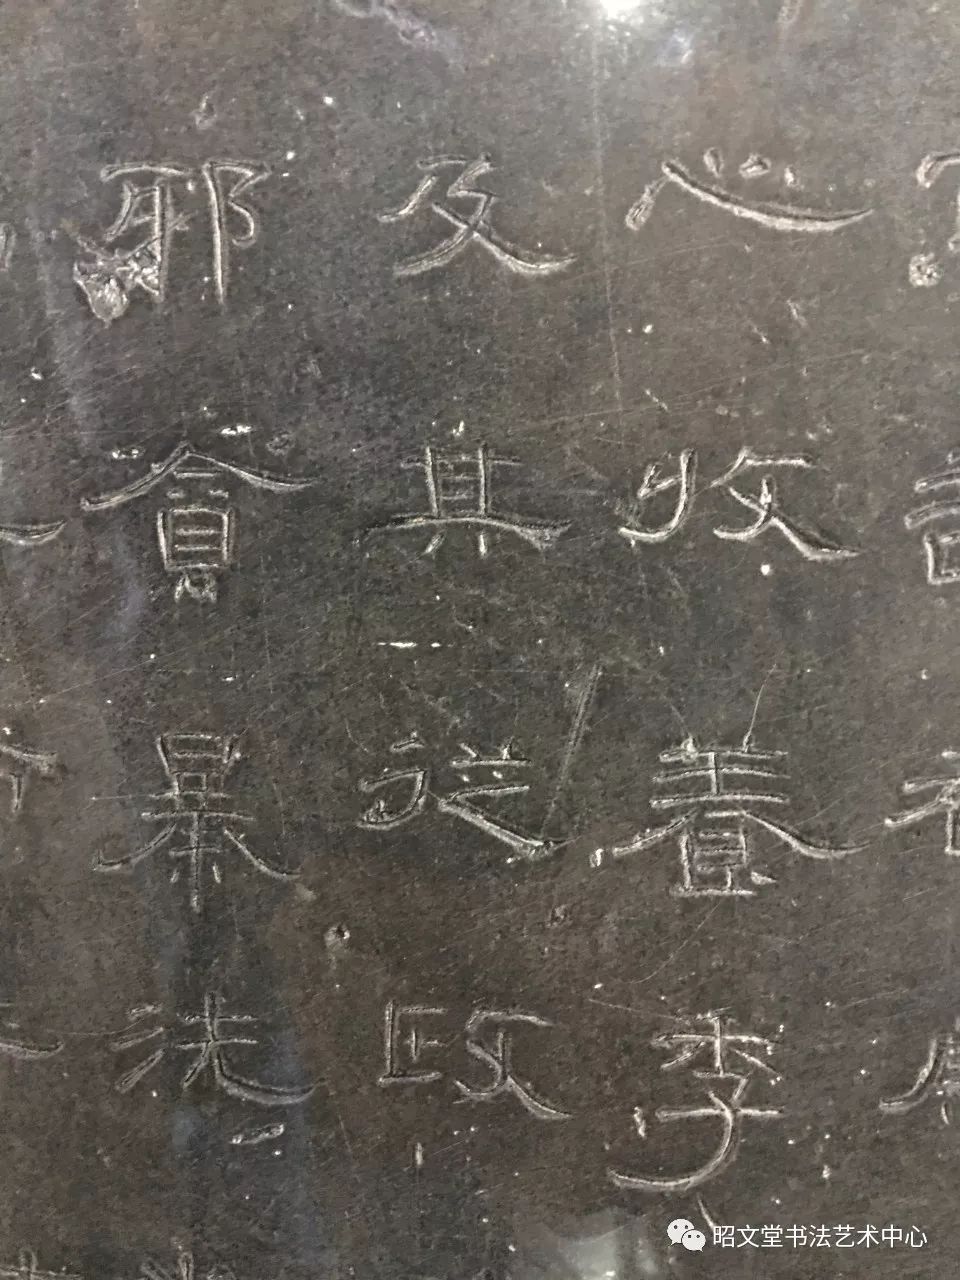 心收養季
及其從政
邪貪暴洗
昭文堂书法艺术中心